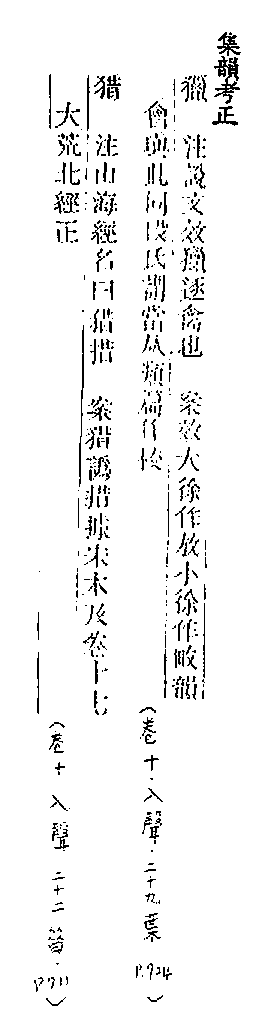 集韻考正
獵 注說文效獵逐禽也 案效大徐作放小徐作畋韻
會與此同段氏謂當从類篇作校 (卷十·入聲·二十九葉 P.924)
猎 注山海經名曰猎措 案猎譌措據宋本及卷十七
大荒北經正 (卷十 入聲 二十二昔·)